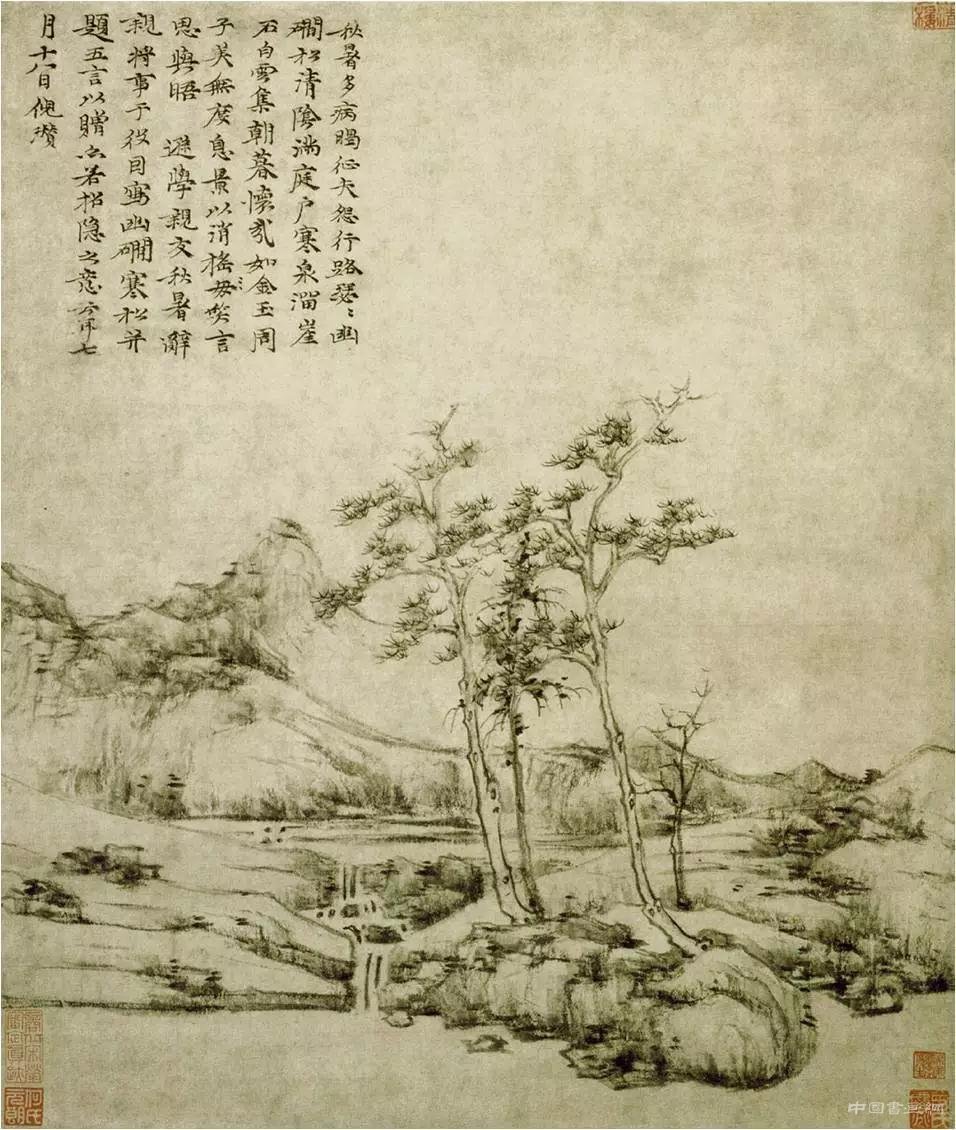 秋暑多病暍征夫怨行路瑟〻幽
磵松清陰滿庭戶寒泉溜崖
石白雲集朝暮懷哉如金玉周
子美無度息景以消搖毋笑言
思與晤 遜學親友秋暑辭
親將事于役因寫幽磵寒松并
題五言以贈亦若招隱之意云耳七
月十八日倪瓚
中國書畫網